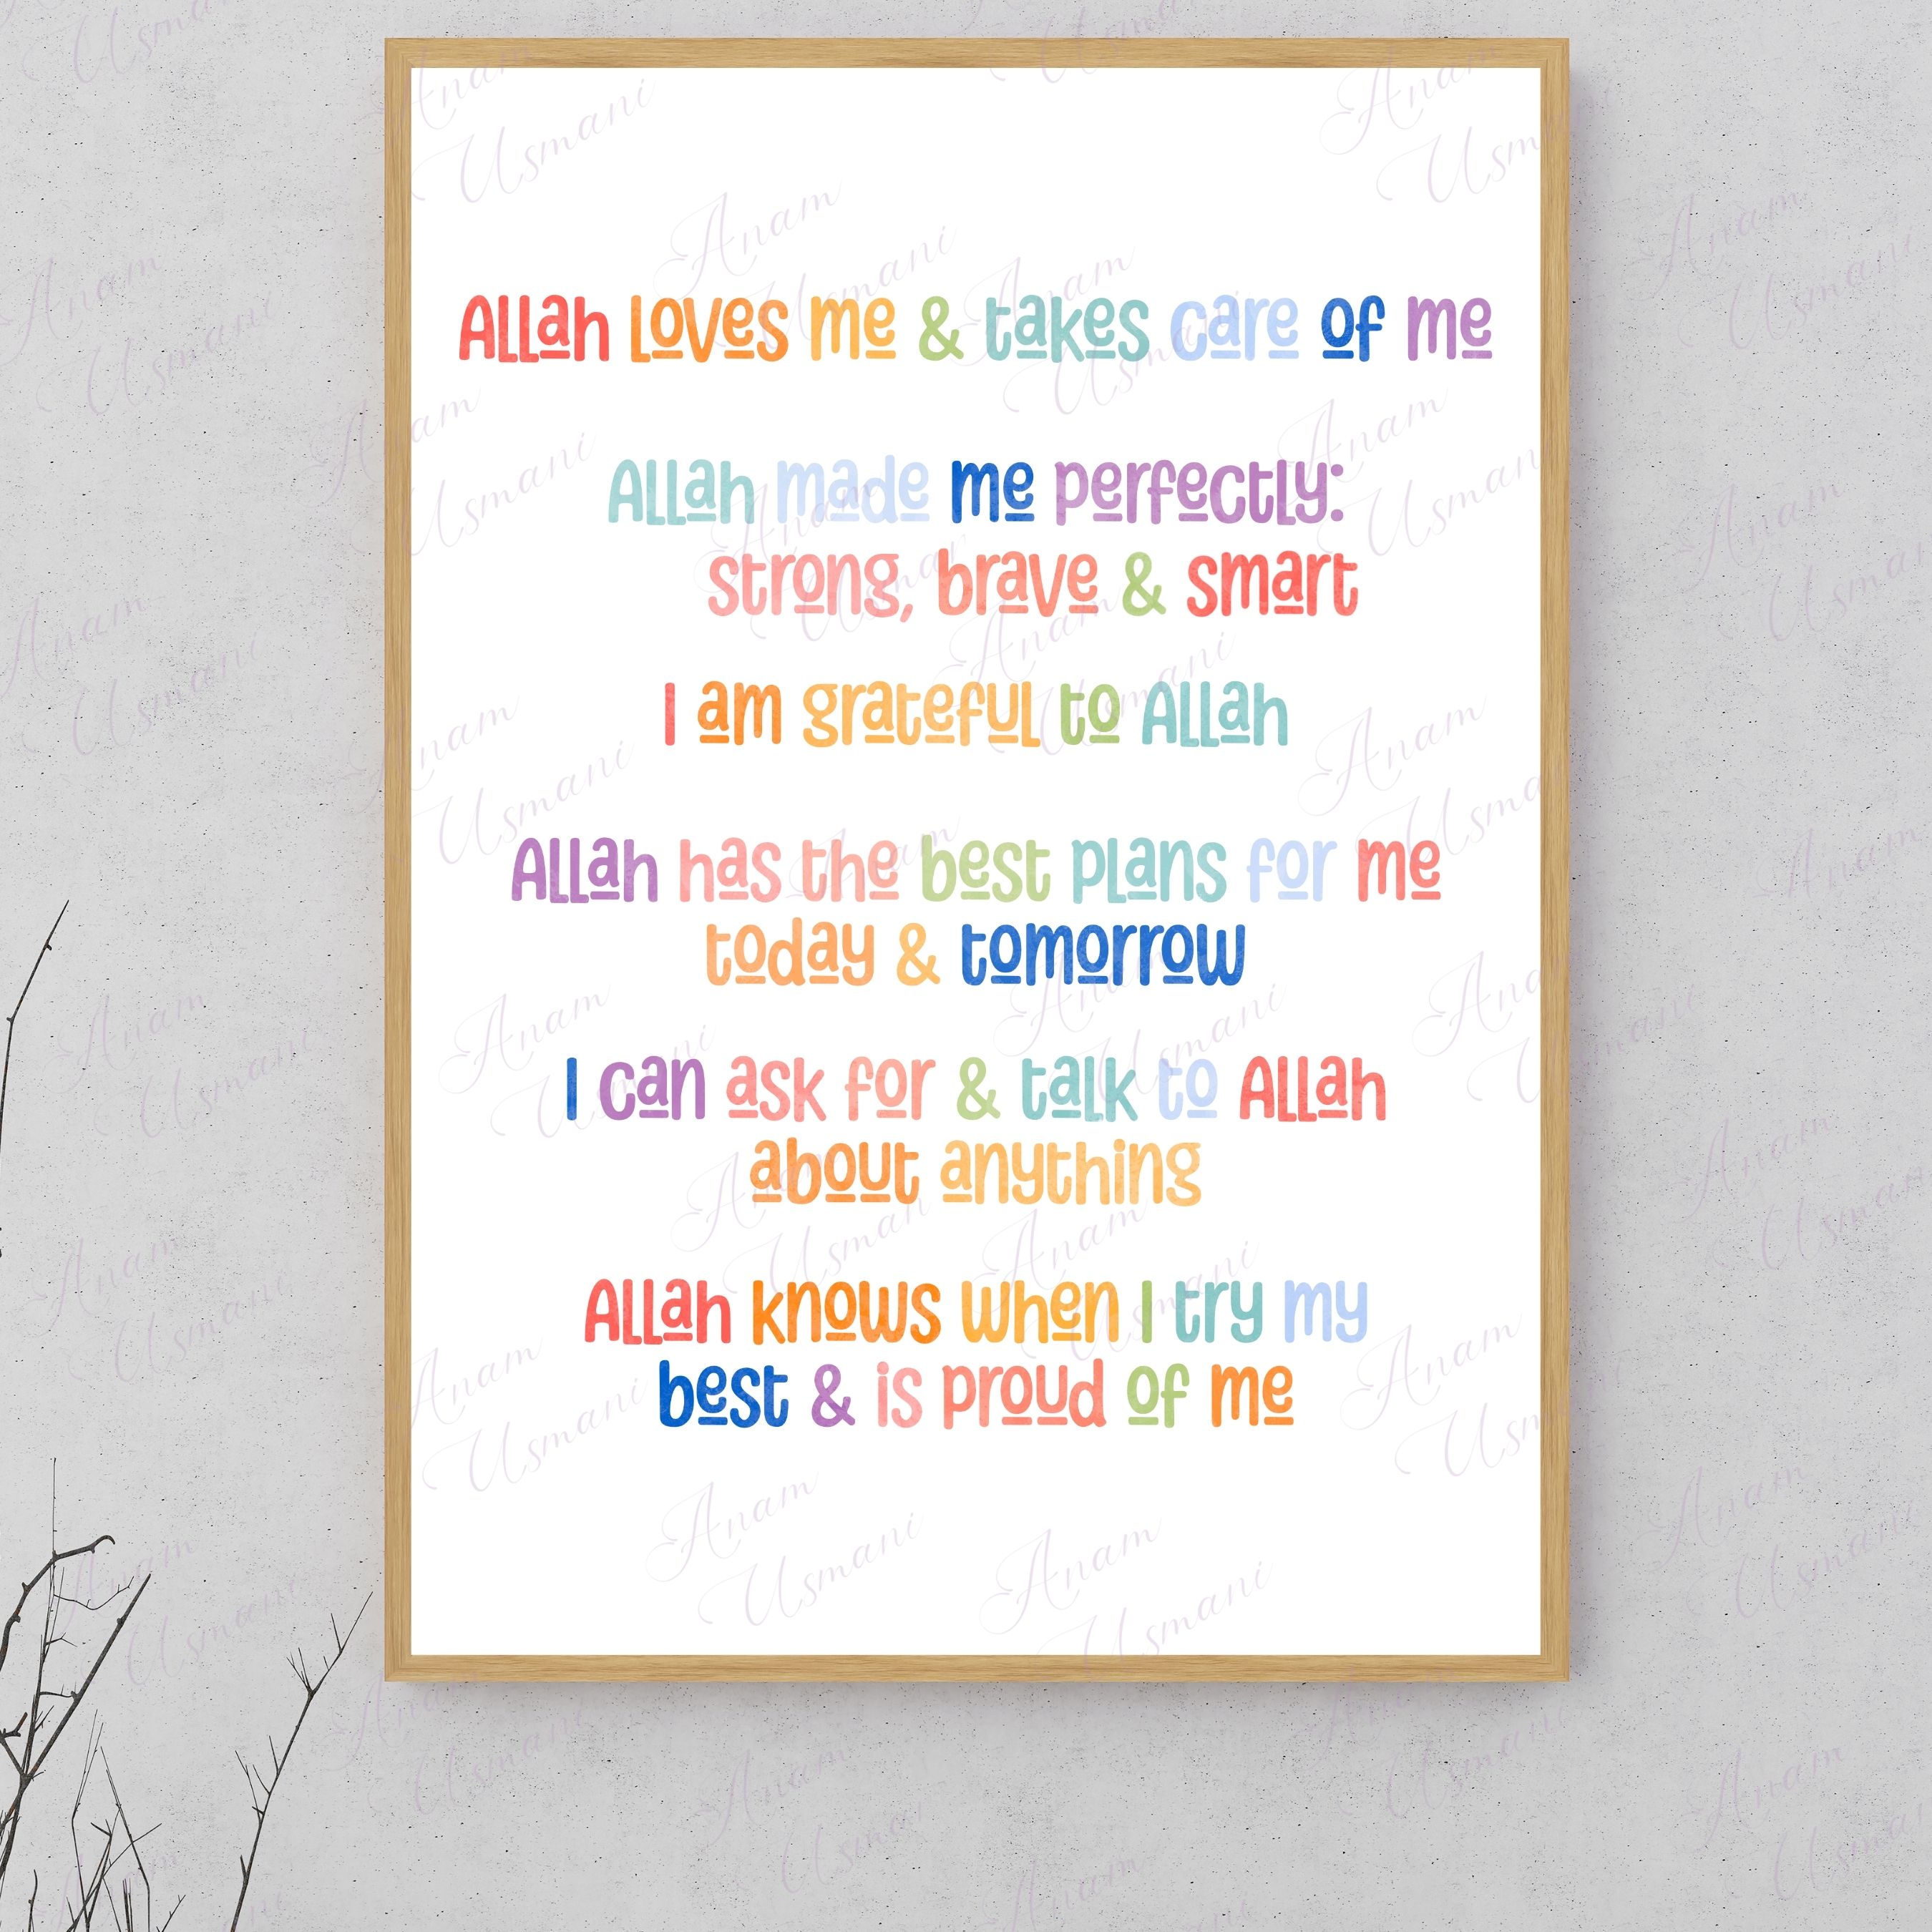 Allah loves me & takes care of me
Allah made me perfectly:
strong, brave & smart
I am grateful to Allah
Allah has the best plans for me
today & tomorrow
I can ask for & talk to Allah
about anything
Allah knows when I try my
best & is proud of me
Anam
Usmani